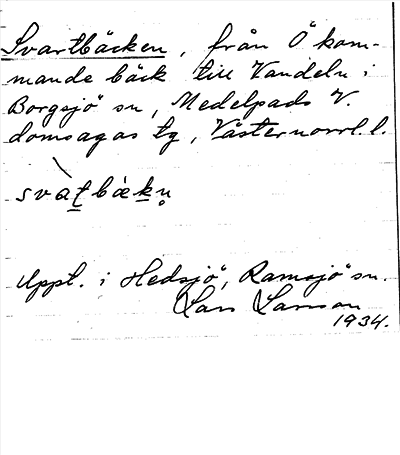 Svartbäcken, från Ö kom-
mande bäck till Vandeln i
Borgsjö sn, Medelpads V.
domsagas tg, Västernorrl. l.
svàt̲bàk̲n̥
Uppt. i Hedsjö, Ramsjö sn.
Lars Larsson
1934.